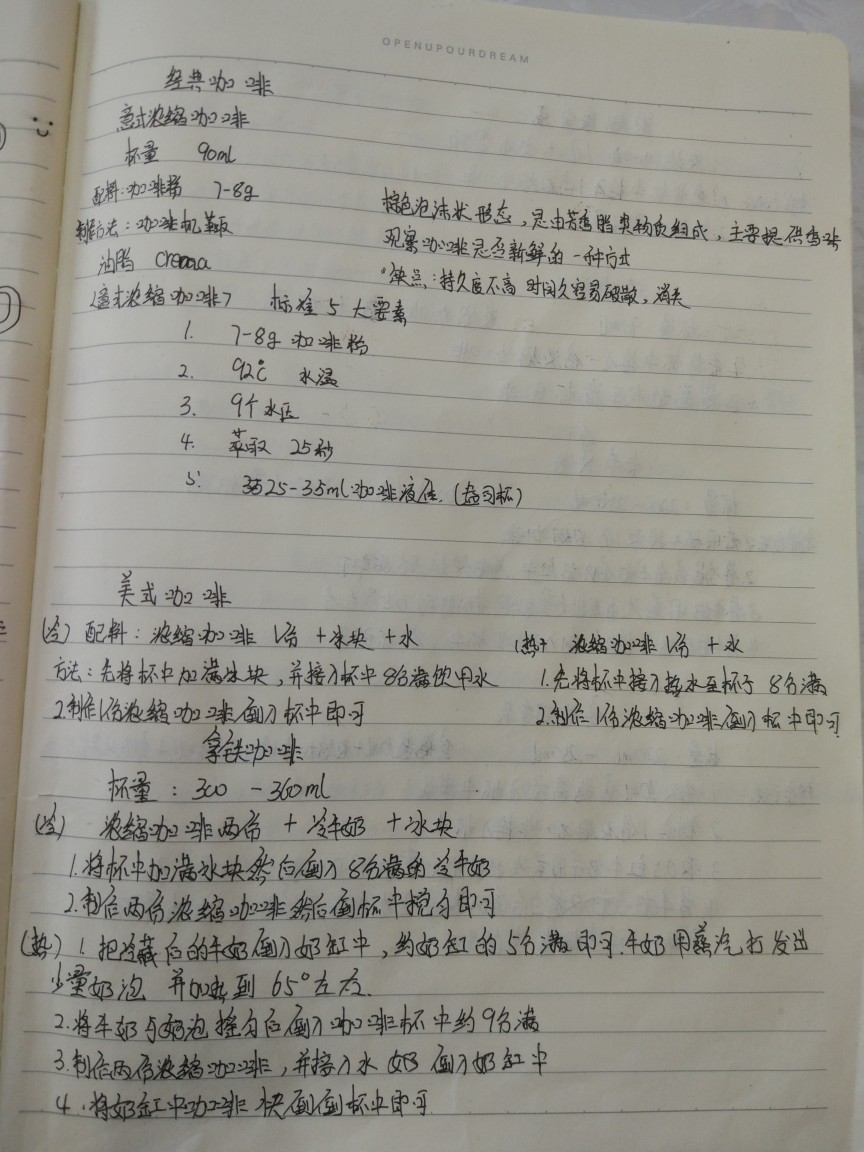 OPENUPOURDREAM
经典咖啡
意式浓缩咖啡
杯量 90ml
配料:咖啡粉 7-8g
制作方法:咖啡机萃取
油脂 crema
棕色泡沫状形态,是由芳香脂类物质组成,主要提供香味
观察咖啡是否新鲜的一种方式
缺点:持久度不高 时间久容易破散,消失
<意式浓缩咖啡> 标准5大要素
1. 7-8g 咖啡粉
2. 92℃ 水温
3. 9个水压
4. 萃取 25秒
5. 25-35ml咖啡液体.(盎司杯)
美式咖啡
(冷) 配料:浓缩咖啡 1份 +冰块+水
方法:先将杯中加满冰块,并接入杯中8分满饮用水
2.制作1份浓缩咖啡倒入杯中即可
(热) 浓缩咖啡1份 +水
1.先将杯中接入热水至杯子 8分满
2.制作1份浓缩咖啡倒入杯中即可
拿铁咖啡
杯量:300 -360ml
(冷) 浓缩咖啡两份 +冷牛奶 +冰块
1.将杯中加满冰块然后倒入8分满的冷牛奶
2.制作两份浓缩咖啡然后倒杯中搅匀即可
(热) 1.把冷藏后的牛奶倒入奶缸中,约奶缸的5分满即可.牛奶用蒸汽打发出
少量奶泡 并加热到 65°左右.
2.将牛奶与奶泡摇匀后倒入咖啡杯中约9分满
3.制作两份浓缩咖啡,并接入水 奶 倒入奶缸中
4.将奶缸中咖啡 快倒倒杯中即可